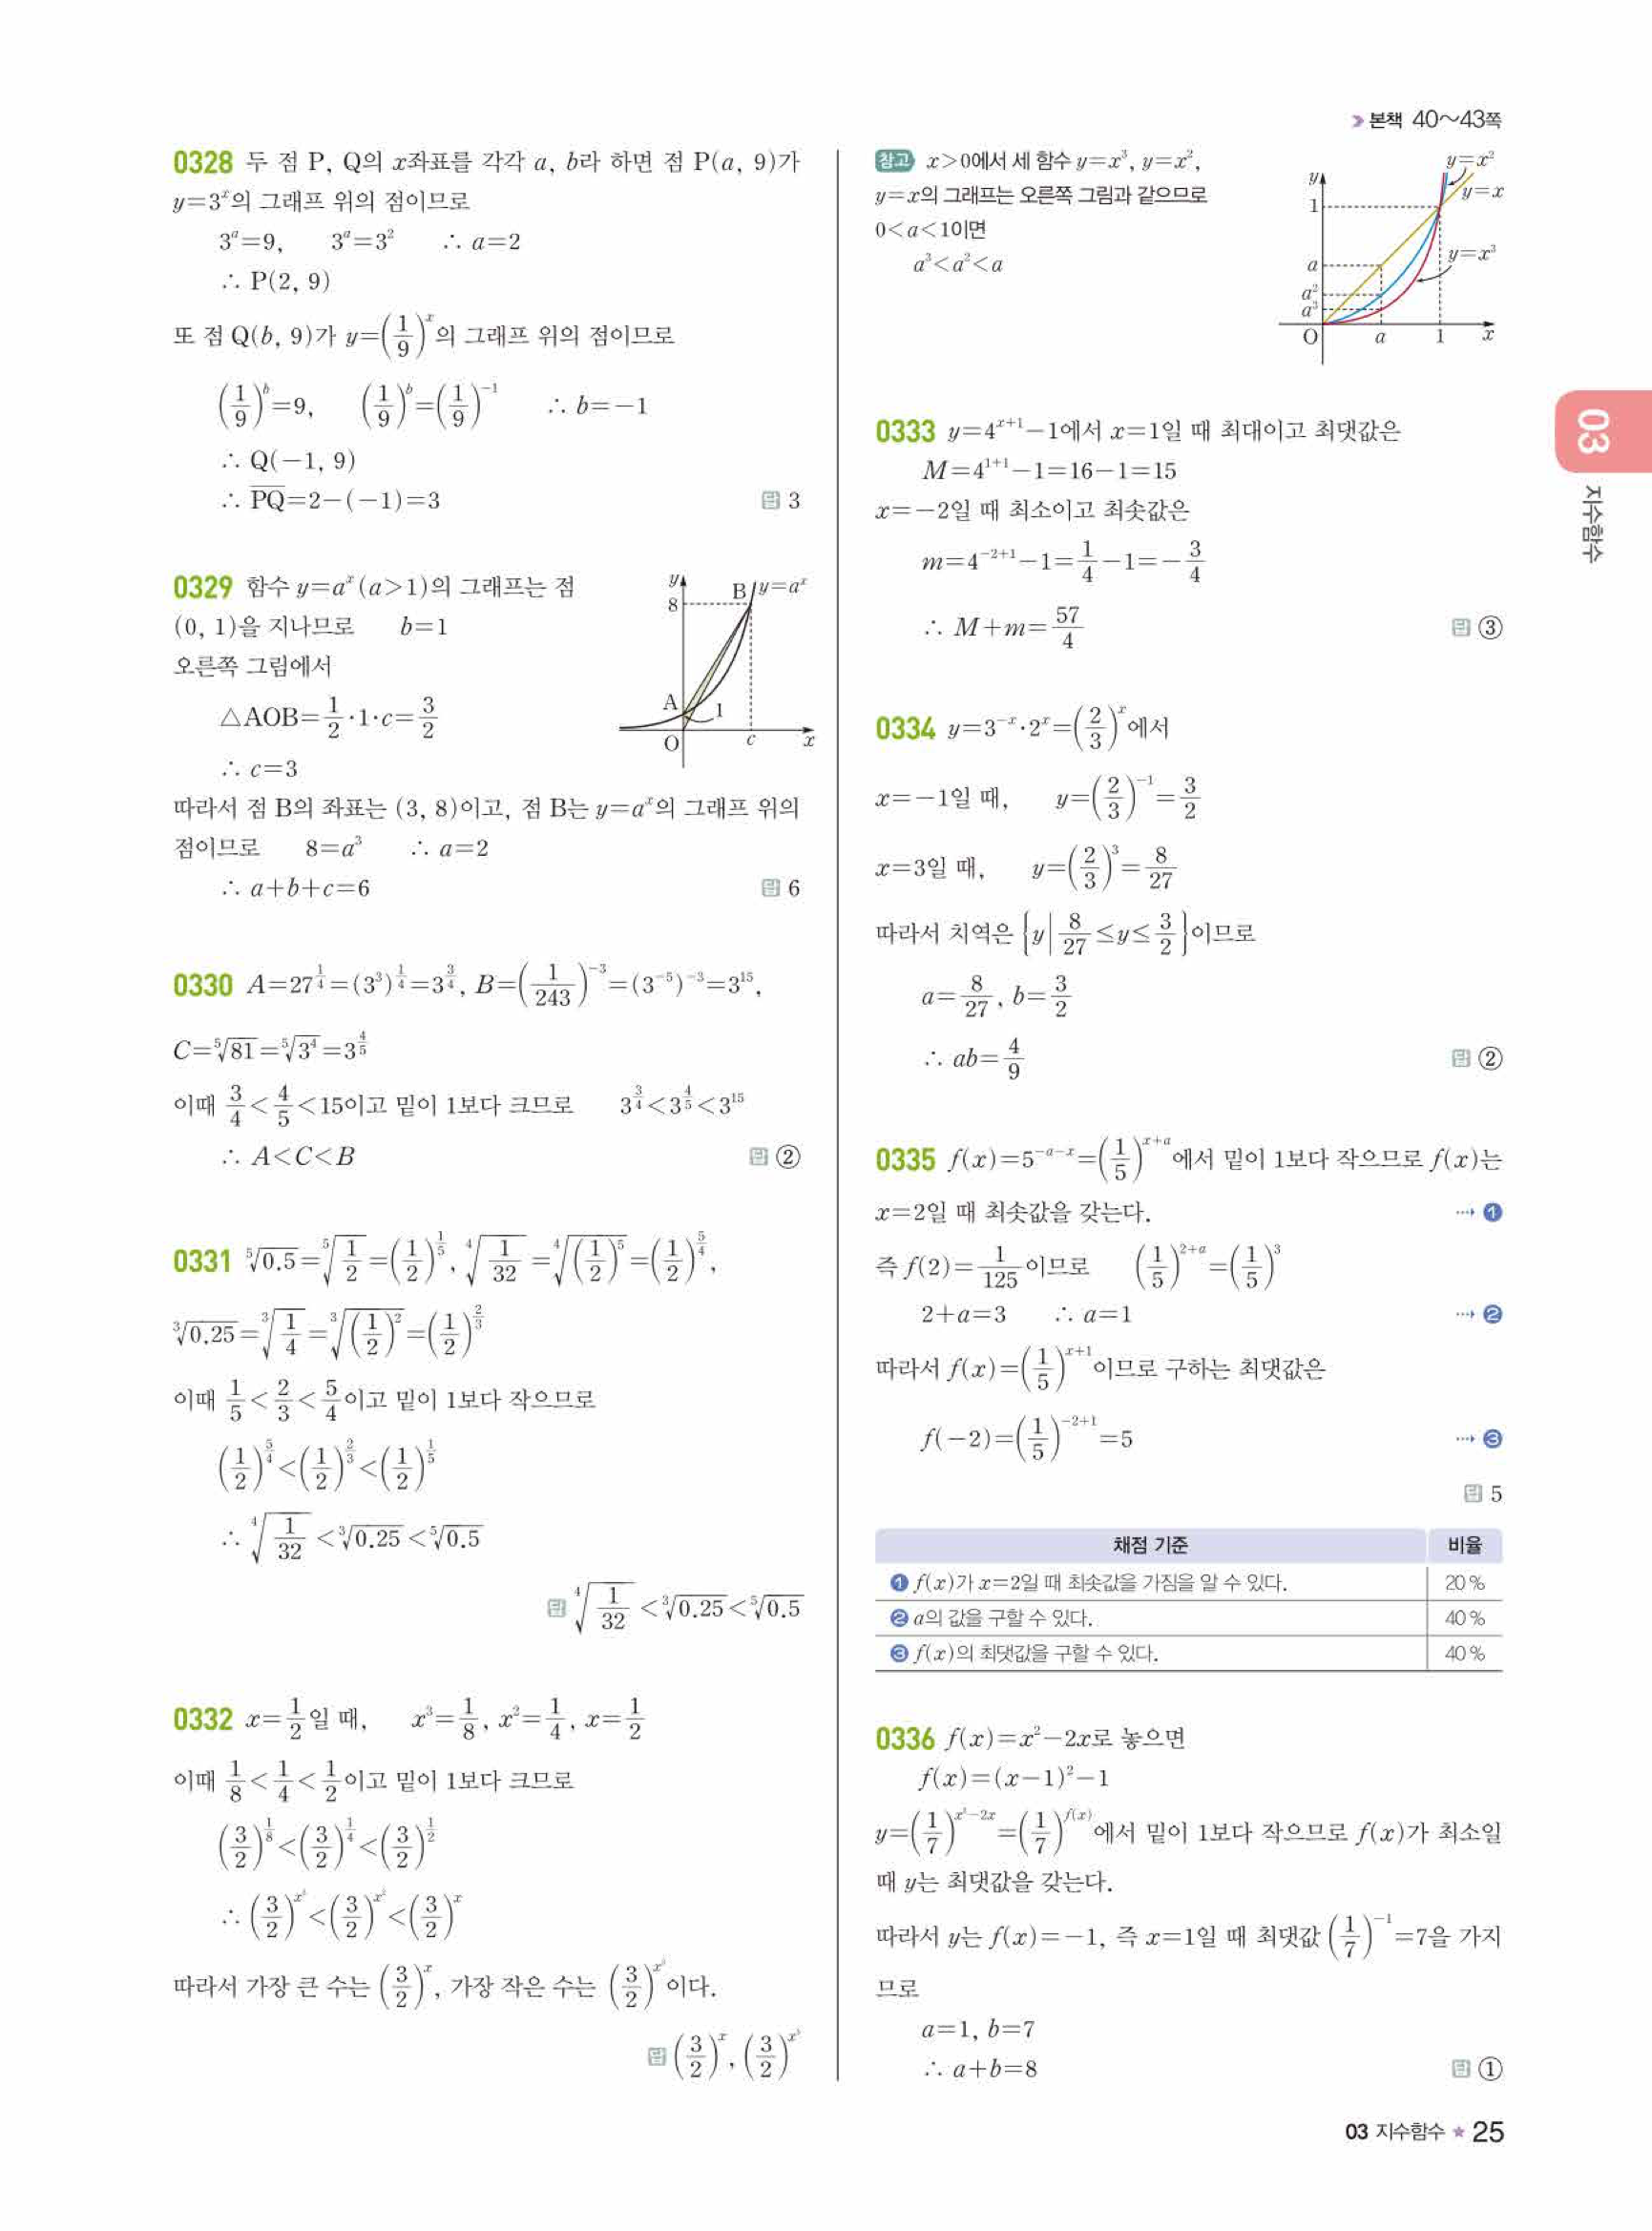 본책 40~43쪽
0328 두 점 P, Q의 x좌표를 각각 a, b라 하면 점 P(a, 9)가
y=3^x의 그래프 위의 점이므로
3^a=9, 3^a=3^2 ∴ a=2
∴ P(2, 9)
또 점 Q(b, 9)가 y=(1/9)^x의 그래프 위의 점이므로
(1/9)^b=9, (1/9)^b=(1/9)^-1 ∴ b=-1
∴ Q(-1, 9)
∴ PQ=2-(-1)=3 답 3
0329 함수 y=a^x (a>1)의 그래프는 점
(0, 1)을 지나므로 b=1
오른쪽 그림에서
△AOB=1/2·1·c=3/2
∴ c=3
y
8
B
y=a^x
A
1
O
c
x
따라서 점 B의 좌표는 (3, 8)이고, 점 B는 y=a^x의 그래프 위의
점이므로 8=a^3 ∴ a=2
∴ a+b+c=6 답 6
0330 A=27^(1/4)=(3^3)^(1/4)=3^(3/4), B=(1/243)^-3=(3^-5)^-3=3^15,
C=⁵√81=⁵√3^4=3^(4/5)
이때 3/4<4/5<15이고 밑이 1보다 크므로 3^(3/4)<3^(4/5)<3^15
∴ A<C<B 답 ②
0331 ⁵√0.5=⁵√(1/2)=(1/2)^(1/5), ⁴√(1/32)=⁴√((1/2)^5)=(1/2)^(5/4),
³√0.25=³√(1/4)=³√((1/2)^2)=(1/2)^(2/3)
이때 1/5<2/3<5/4이고 밑이 1보다 작으므로
(1/2)^(5/4)<(1/2)^(2/3)<(1/2)^(1/5)
∴ ⁴√(1/32)<³√0.25<⁵√0.5
답 ⁴√(1/32)<³√0.25<⁵√0.5
0332 x=1/2일 때, x^3=1/8, x^2=1/4, x=1/2
이때 1/8<1/4<1/2이고 밑이 1보다 크므로
(3/2)^(1/8)<(3/2)^(1/4)<(3/2)^(1/2)
∴ (3/2)^(x^3)<(3/2)^(x^2)<(3/2)^x
따라서 가장 큰 수는 (3/2)^x, 가장 작은 수는 (3/2)^(x^3)이다.
답 (3/2)^x, (3/2)^(x^3)
참고 x>0에서 세 함수 y=x^3, y=x^2,
y=x의 그래프는 오른쪽 그림과 같으므로
0<a<1이면
a^3<a^2<a
y
y=x^2
y=x
1
y=x^3
a
a^2
a^3
O
a
1
x
0333 y=4^(x+1)-1에서 x=1일 때 최대이고 최댓값은
M=4^(1+1)-1=16-1=15
x=-2일 때 최소이고 최솟값은
m=4^(-2+1)-1=1/4-1=-3/4
∴ M+m=57/4 답 ③
0334 y=3^-x·2^x=(2/3)^x에서
x=-1일 때, y=(2/3)^-1=3/2
x=3일 때, y=(2/3)^3=8/27
따라서 치역은 {y|8/27≤y≤3/2}이므로
a=8/27, b=3/2
∴ ab=4/9 답 ②
0335 f(x)=5^(-a-x)=(1/5)^(x+a)에서 밑이 1보다 작으므로 f(x)는
x=2일 때 최솟값을 갖는다. ⋯➜ ❶
즉 f(2)=1/125이므로 (1/5)^(2+a)=(1/5)^3
2+a=3 ∴ a=1 ⋯➜ ❷
따라서 f(x)=(1/5)^(x+1)이므로 구하는 최댓값은
f(-2)=(1/5)^(-2+1)=5 ⋯➜ ❸
답 5
채점 기준 비율
❶ f(x)가 x=2일 때 최솟값을 가짐을 알 수 있다. 20 %
❷ a의 값을 구할 수 있다. 40 %
❸ f(x)의 최댓값을 구할 수 있다. 40 %
0336 f(x)=x^2-2x로 놓으면
f(x)=(x-1)^2-1
y=(1/7)^(x^2-2x)=(1/7)^f(x)에서 밑이 1보다 작으므로 f(x)가 최소일
때 y는 최댓값을 갖는다.
따라서 y는 f(x)=-1, 즉 x=1일 때 최댓값 (1/7)^-1=7을 가지
므로
a=1, b=7
∴ a+b=8 답 ①
03
지수함수
03 지수함수 ★ 25